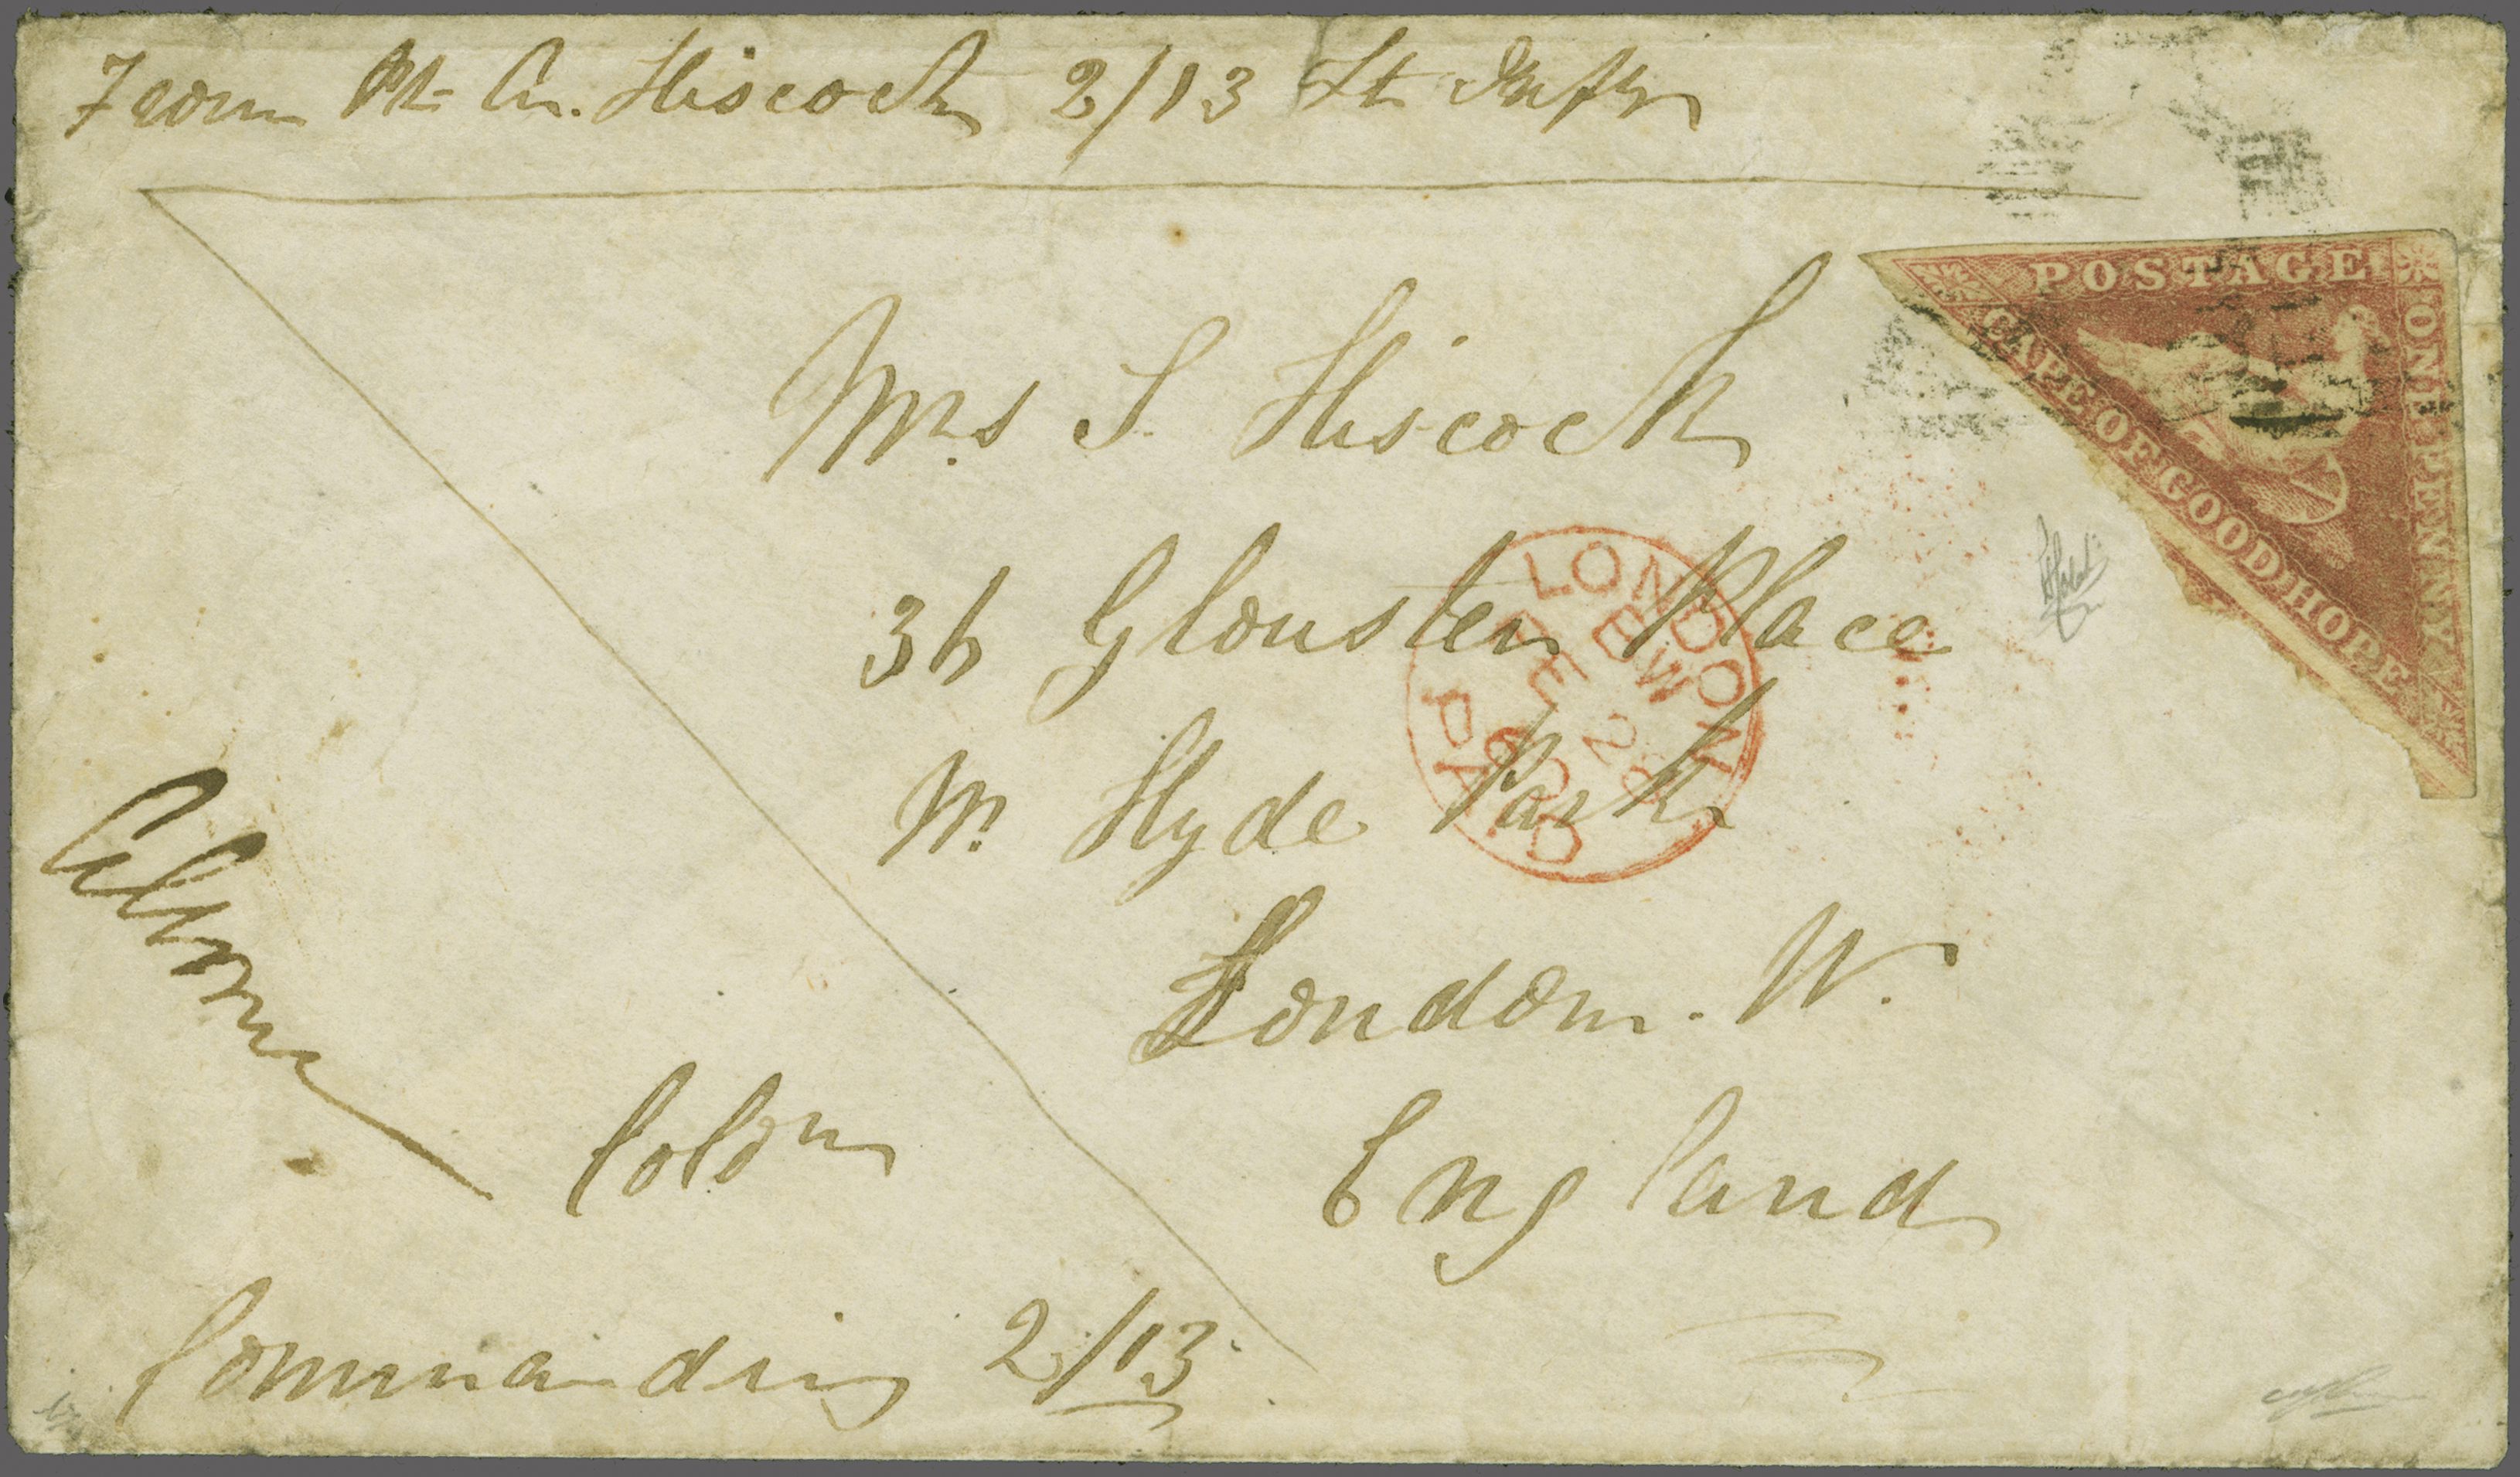 From Pt. G. Hiscock 2/13 Lt Infty
POSTAGE
ONE PENNY
CAPE OF GOOD HOPE
Mrs S Hiscock
36 Glouster Place
W. Hyde Park
London. W.
England
LONDON
EW
FE 28
60
PAID
Colon
Commanding 2/13